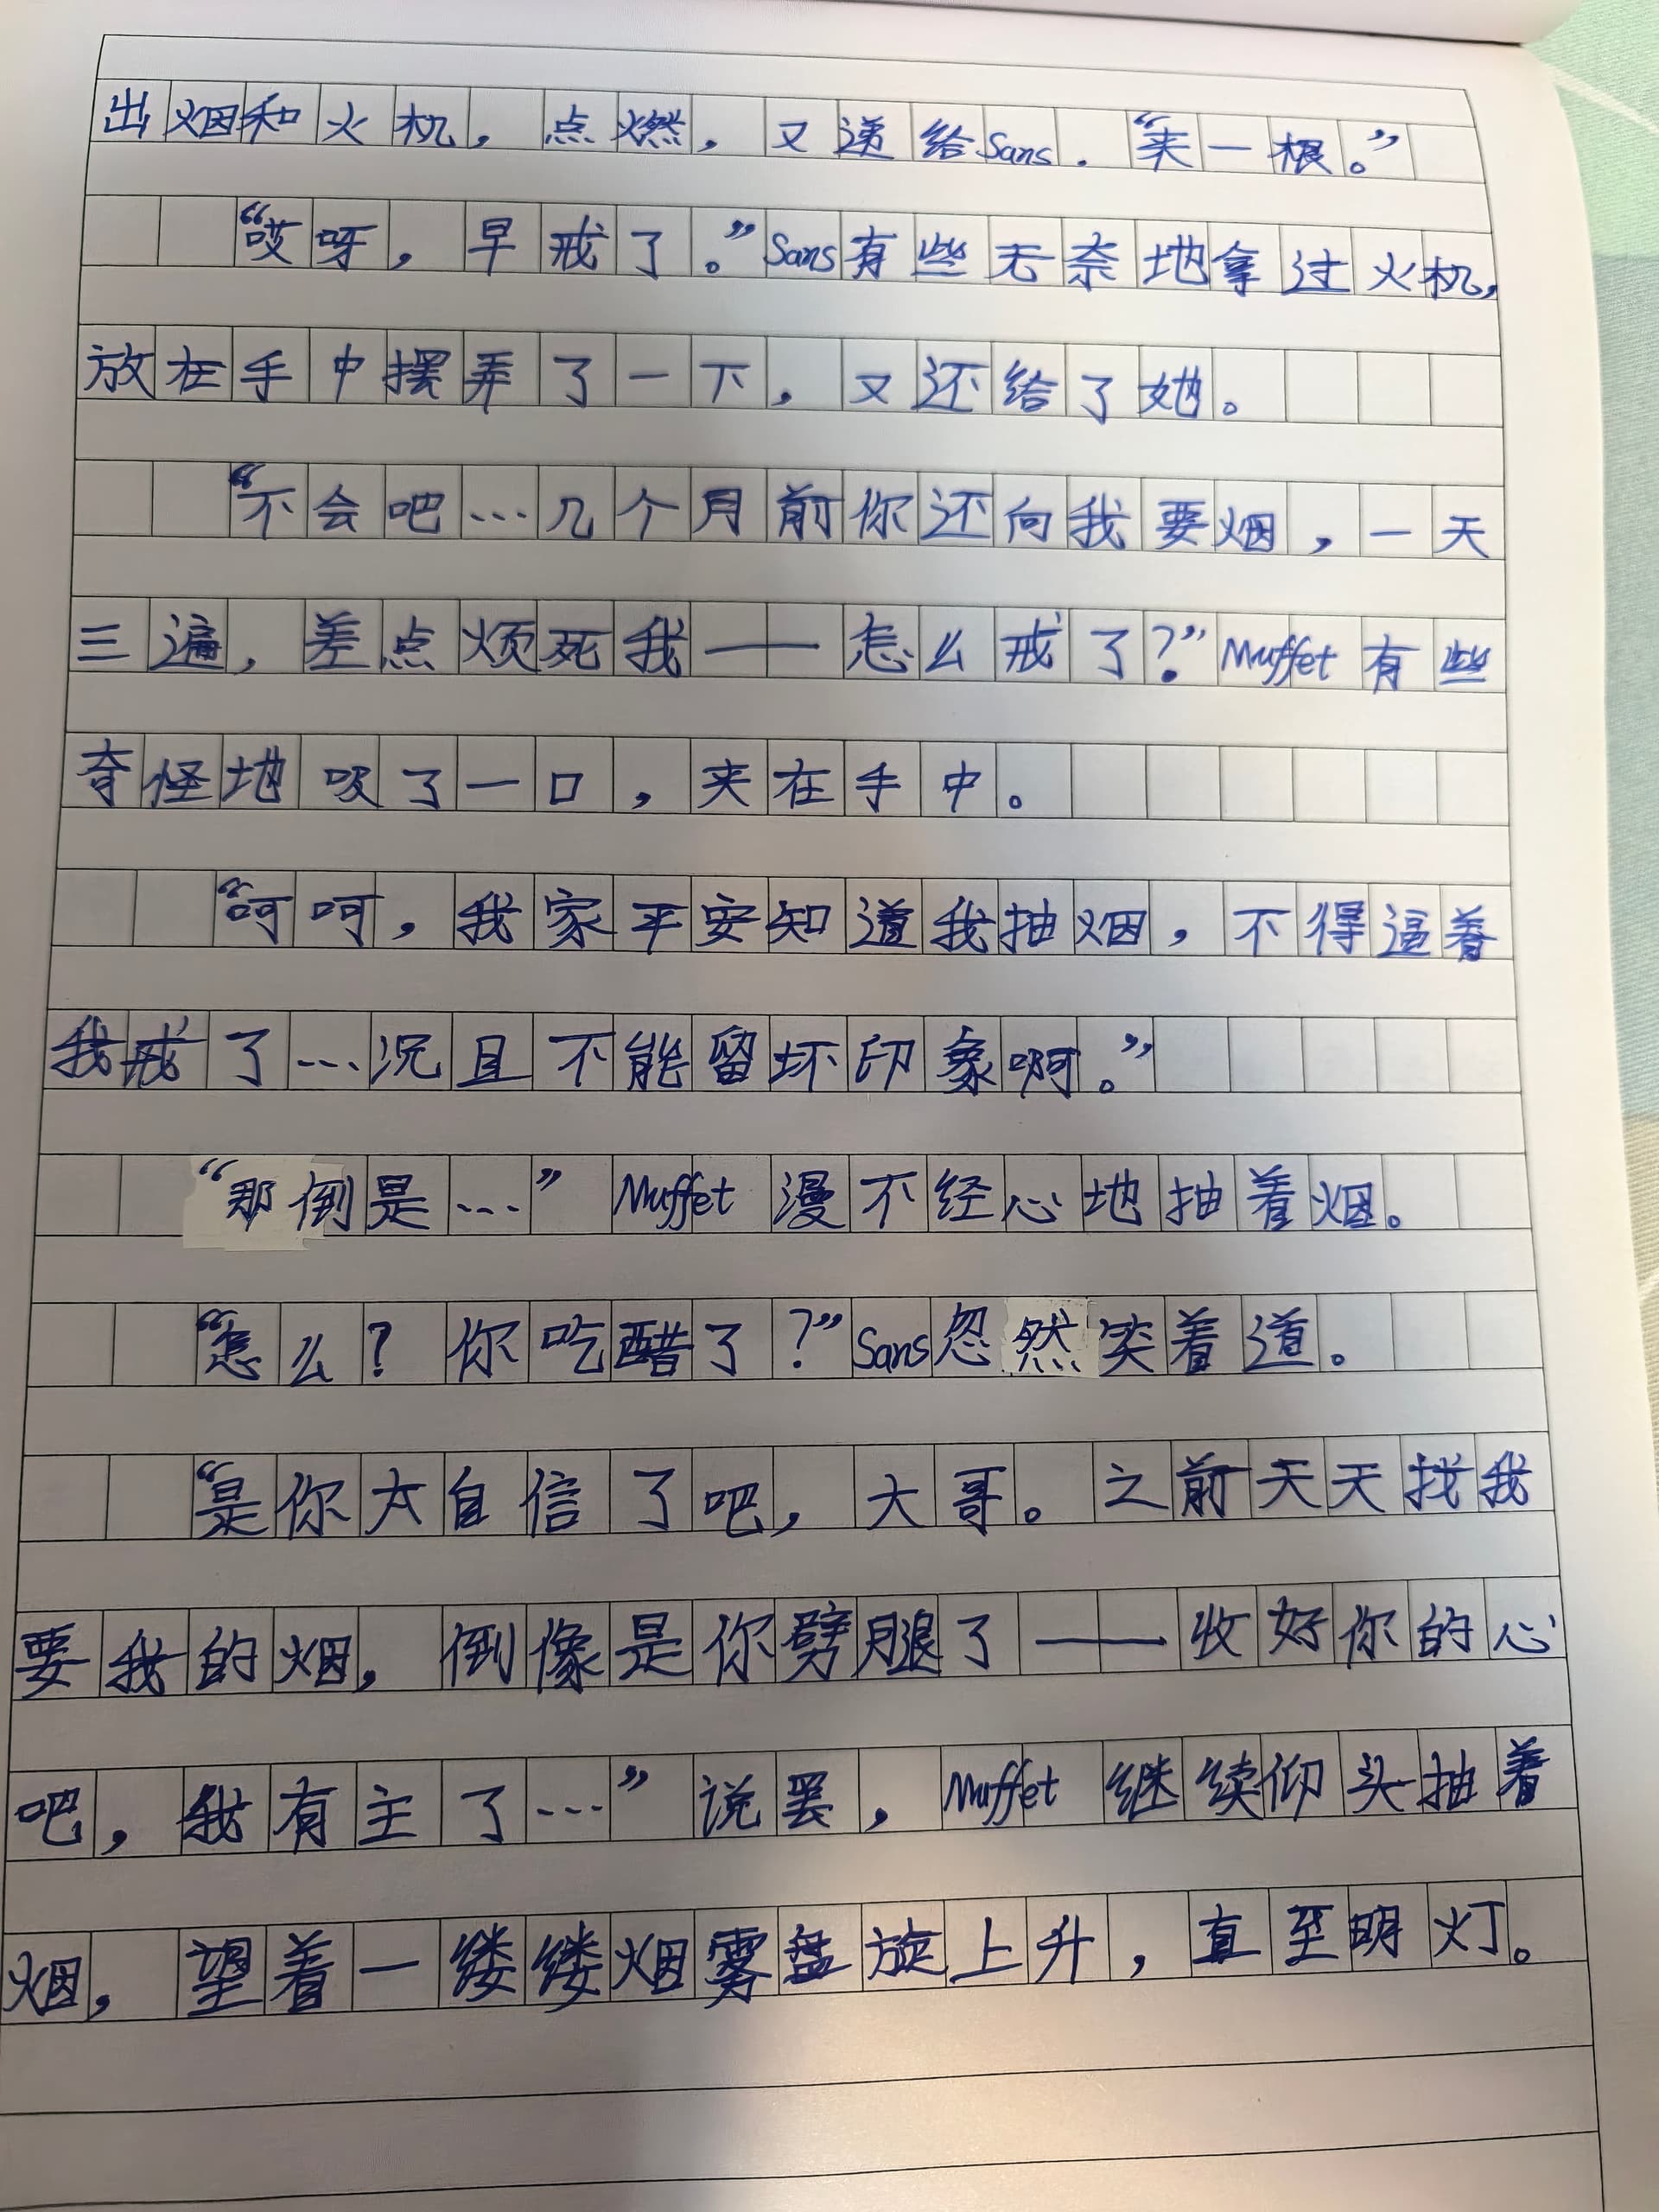 出烟和火机，点燃，又递给Sans.“来一根。”
“哎呀，早戒了。”Sans有些无奈地拿过火机，
放在手中摆弄了一下，又还给了她。
“不会吧…几个月前你还向我要烟，一天
三遍，差点烦死我——怎么戒了？”Muffet有些
奇怪地吸了一口，夹在手中。
“呵呵，我家平安知道我抽烟，不得逼着
我戒了…况且不能留坏印象啊。”
“那倒是…”Muffet漫不经心地抽着烟。
“怎么？你吃醋了？”Sans忽然笑着道。
“是你太自信了吧，大哥。之前天天找我
要我的烟，倒像是你劈腿了——收好你的心
吧，我有主了…”说罢，Muffet继续仰头抽着
烟，望着一缕缕烟雾盘旋上升，直至明灯。